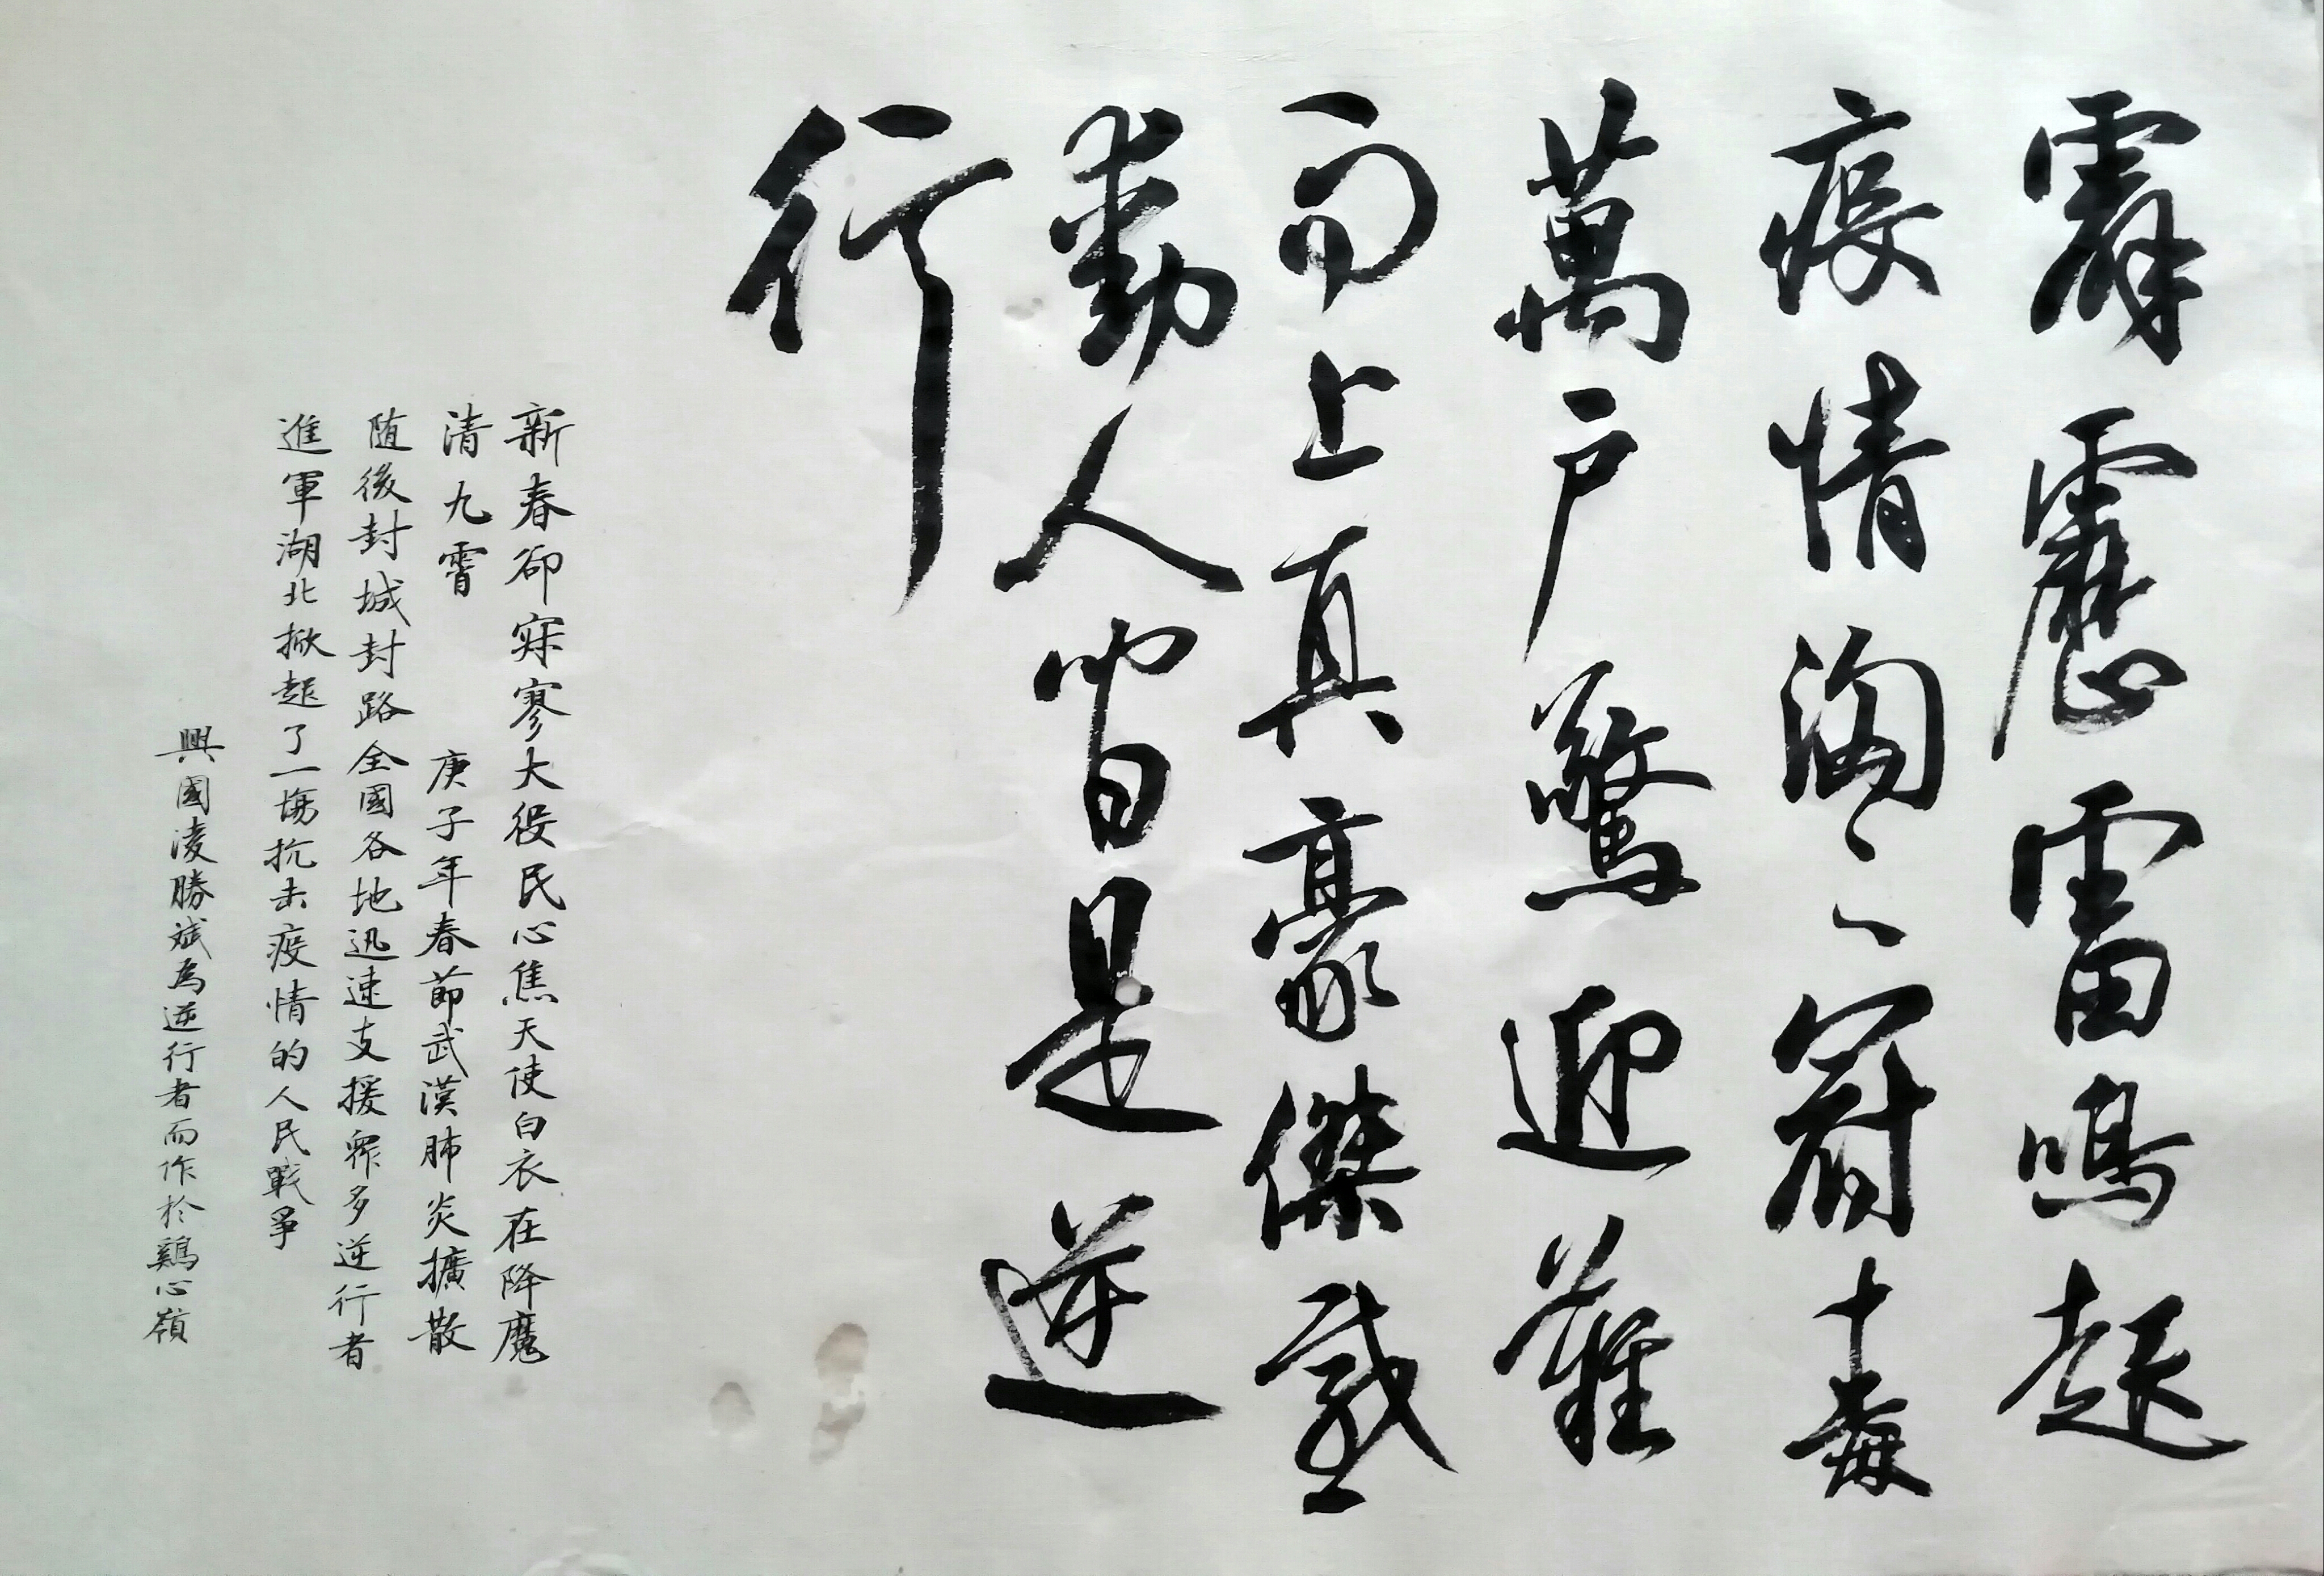 霹靂雷鳴起
疫情洶〻冠十毒
萬戶驚迎難
而上真豪傑感
動人皆是逆
行
新春卻寐寥大役民心焦天使白衣在降魔
清九霄 庚子年春節武漢肺炎擴散
随後封城封路全國各地迅速支援眾多逆行者
進軍湖北掀起了一場抗击疫情的人民戰爭
興國凌勝斌為逆行者而作於鷄心嶺